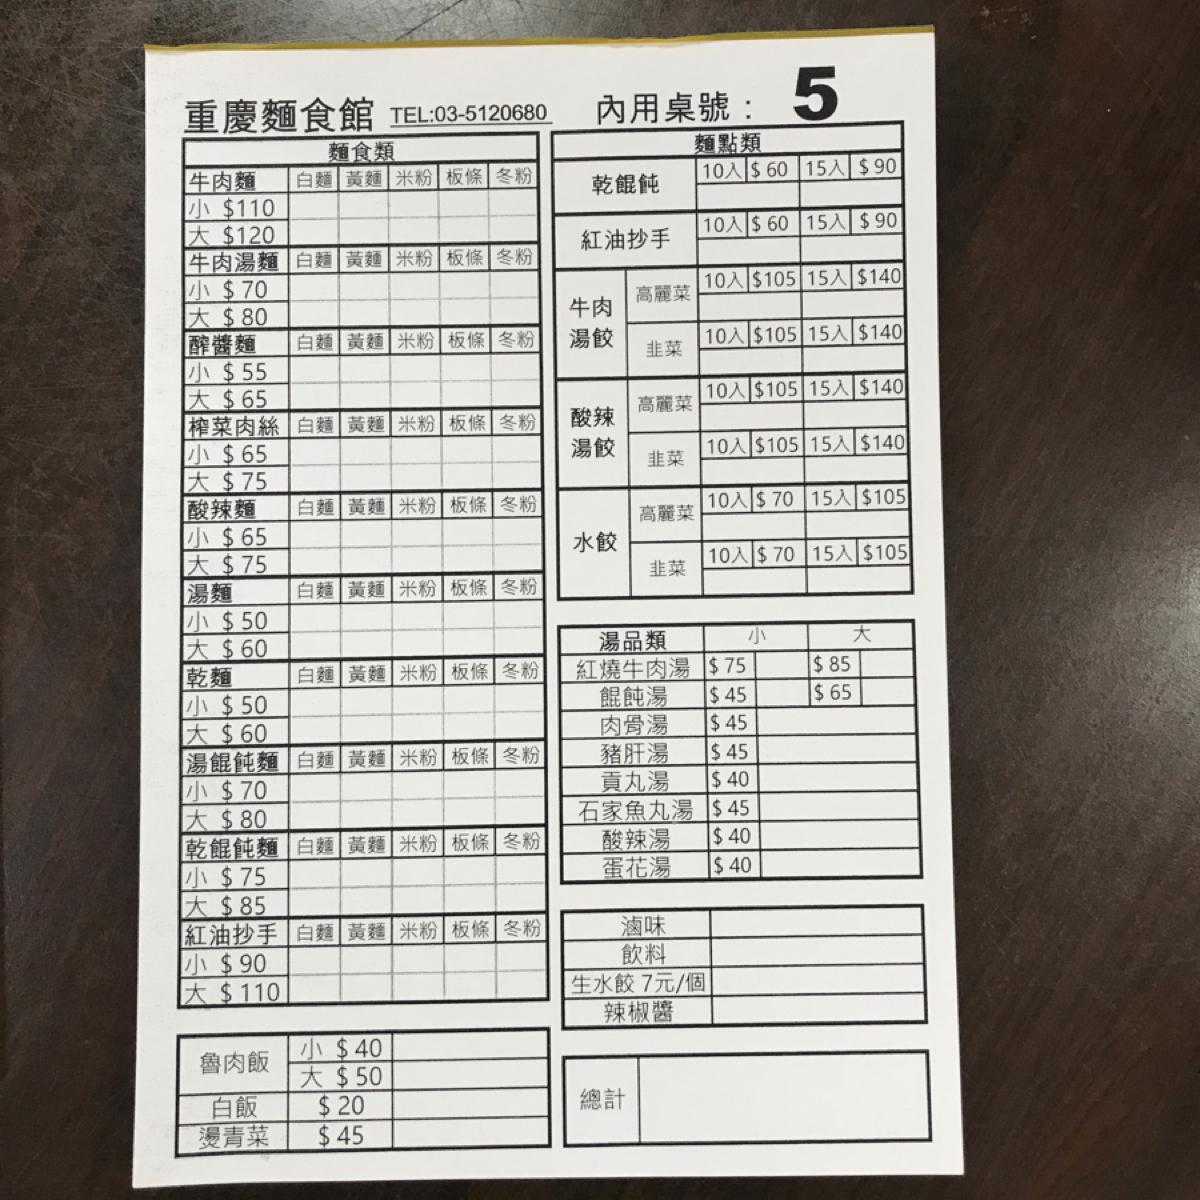 重慶麵食館 TEL:03-5120680 內用桌號： 5
麵食類
牛肉麵 白麵 黃麵 米粉 板條 冬粉
小 $110
大 $120
牛肉湯麵 白麵 黃麵 米粉 板條 冬粉
小 $ 70
大 $ 80
酢醬麵 白麵 黃麵 米粉 板條 冬粉
小 $ 55
大 $ 65
榨菜肉絲 白麵 黃麵 米粉 板條 冬粉
小 $ 65
大 $ 75
酸辣麵 白麵 黃麵 米粉 板條 冬粉
小 $ 65
大 $ 75
湯麵 白麵 黃麵 米粉 板條 冬粉
小 $ 50
大 $ 60
乾麵 白麵 黃麵 米粉 板條 冬粉
小 $ 50
大 $ 60
湯餛飩麵 白麵 黃麵 米粉 板條 冬粉
小 $ 70
大 $ 80
乾餛飩麵 白麵 黃麵 米粉 板條 冬粉
小 $ 75
大 $ 85
紅油抄手 白麵 黃麵 米粉 板條 冬粉
小 $ 90
大 $ 110
魯肉飯 小 $ 40
大 $ 50
白飯 $ 20
燙青菜 $ 45
麵點類
乾餛飩 10入 $ 60 15入 $ 90
紅油抄手 10入 $ 60 15入 $ 90
牛肉
湯餃
高麗菜 10入 $105 15入 $140
韭菜 10入 $105 15入 $140
酸辣
湯餃
高麗菜 10入 $105 15入 $140
韭菜 10入 $105 15入 $140
水餃
高麗菜 10入 $ 70 15入 $105
韭菜 10入 $ 70 15入 $105
湯品類 小 大
紅燒牛肉湯 $ 75 $ 85
餛飩湯 $ 45 $ 65
肉骨湯 $ 45
豬肝湯 $ 45
貢丸湯 $ 40
石家魚丸湯 $ 45
酸辣湯 $ 40
蛋花湯 $ 40
滷味
飲料
生水餃 7元/個
辣椒醬
總計